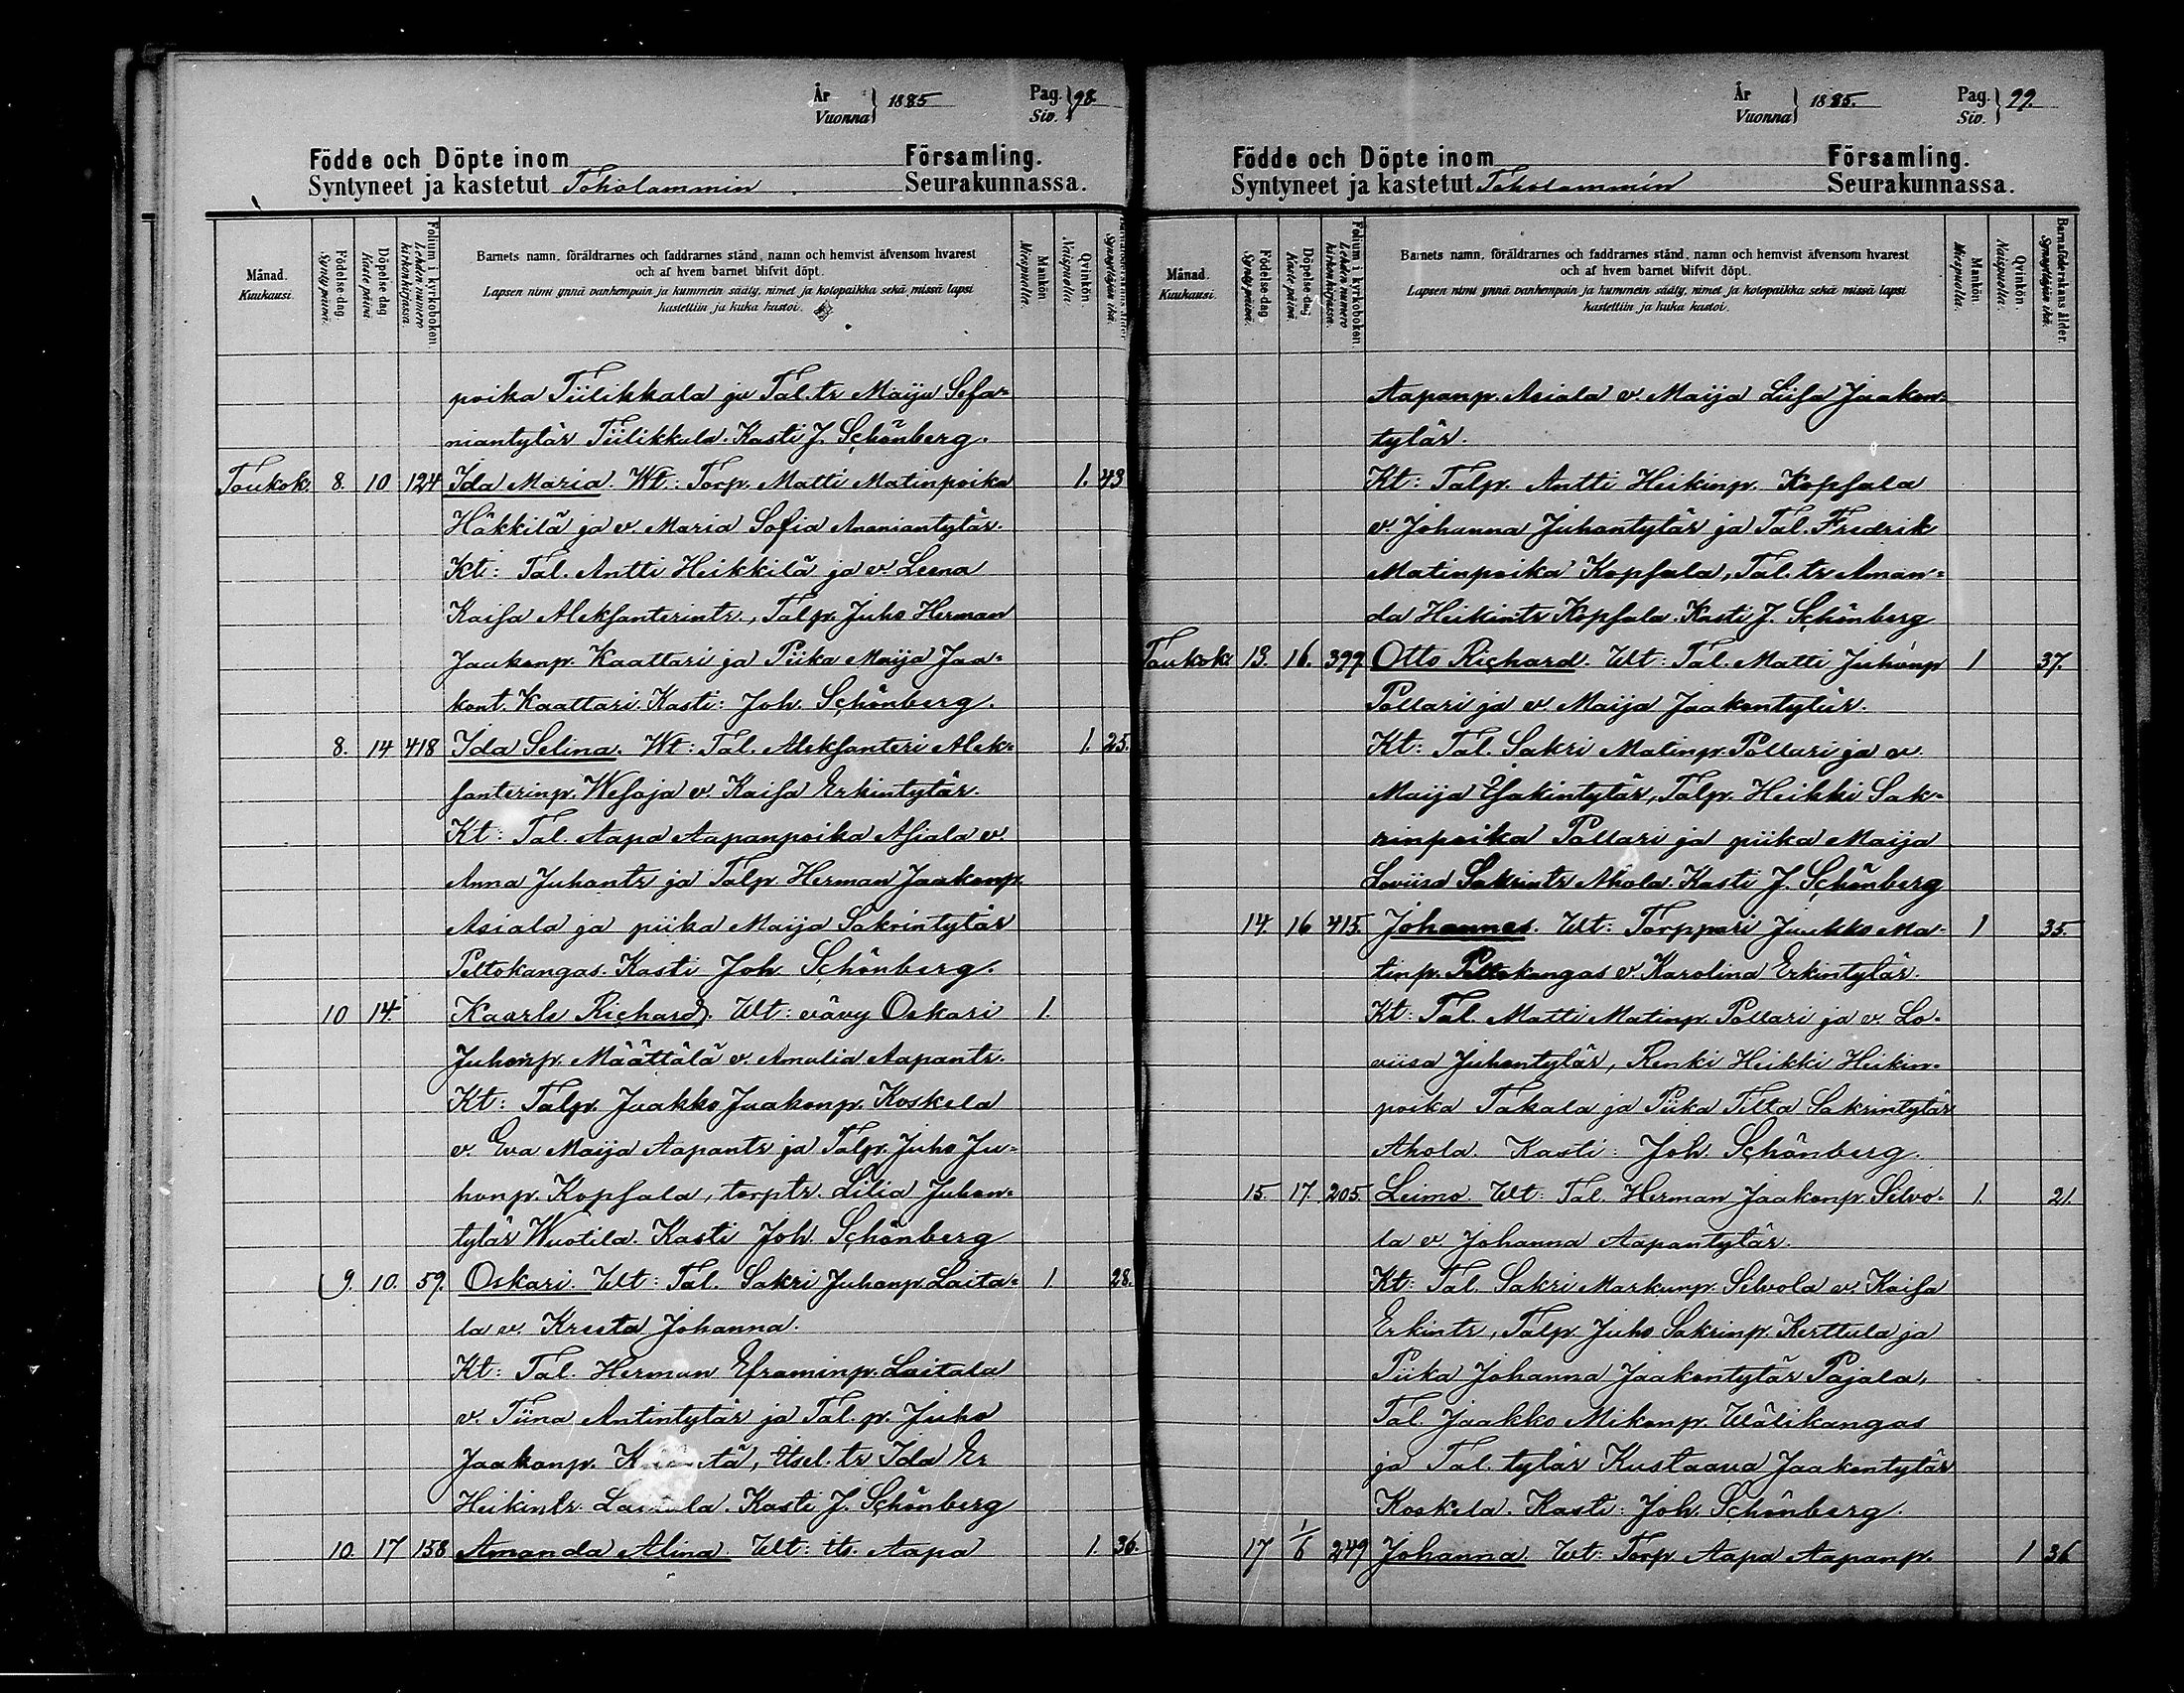 År
Vuonna } 1885
Pag.
Siv. } 98.
Födde och Döpte inom Församling.
Syntyneet ja kastetut Toholammin Seurakunnassa.
Månad.
Kuukausi.
Födelse-dag.
Syntymä päivä.
Döpelse-dag
Kaste päivä
Folium i kyrkoboken.
Lehden numero kirkonkirjassa.
Barnets namn, föräldrarnes och faddrarnes stånd, namn och hemvist äfvensom hvarest
och af hvem barnet blifvit döpt.
Lapsen nimi ynnä vanhempain ja kummein sääty, nimet ja kotopaikka sekä missä lapsi
kastettiin ja kuka kastoi.
Mankön
Miespuolta.
Qvinkön.
Naispuolta.
Synnyttäjän ikä.
poika Tiilikkala ja Tal. tr Maija Sefa-
niantytär Tiilikkala. Kasti J. Schönberg.
Toukok. 8. 10 124 Ida Maria. Wt: Torp. Matti Matinpoika 1. 43
Häkkilä ja v. Maria Sofia Ananiantytär.
Kt: Tal. Antti Heikkilä ja v. Leena
Kaisa Aleksanterintr., Talp. Juho Herman
Jaakonp. Kaattari ja Piika Maija Jaa-
kont. Kaattari. Kasti: Joh. Schönberg.
8. 14 418 Ida Selina. Wt: Tal. Aleksanteri Alek- 1. 25.
santerinp. Wesaja v. Kaisa Erkintytär.
Kt: Tal. Aapa Aapanpoika Asiala v.
Anna Juhontr ja Talp. Herman Jaakonp.
Asiala ja piika Maija Sakrintytär
Peltokangas. Kasti Joh Schönberg.
10 14. Kaarle Richard. Wt: vävy Oskari 1.
Juhonp. Määttälä v. Amalia Aapantr.
Kt: Talp. Jaakko Jaakonp. Koskela
v. Eva Maija Aapantr ja Talp. Juho Ju-
honp. Kopsala, torptr. Lilia Juhon-
tytär Wuotila. Kasti Joh. Schönberg
9. 10. 59. Oskari. Wt: Tal. Sakri Juhonp. Laita- 1. 28.
la v. Kreeta Johanna.
Kt: Tal. Herman Eframinp. Laitala
v. Tiina Antintytär ja Tal. p. Juho
Jaakonp. tr Ida
Heikintr Laitala. Kasti J. Schönberg
10. 17 158 Amanda Alina. Wt: its. Aapa 1. 36.
År
Vuonna } 1885.
Pag.
Siv. } 99.
Födde och Döpte inom Församling.
Syntyneet ja kastetut Toholammin Seurakunnassa.
Månad.
Kuukausi.
Födelse-dag
Syntymä päivä.
Döpelse-dag
Kaste päivä
Folium i kyrkoboken.
Lehden numero kirkonkirjassa.
Barnets namn, föräldrarnes och faddrarnes stånd, namn och hemvist äfvensom hvarest
och af hvem barnet blifvit döpt.
Lapsen nimi ynnä vanhempain ja kummein sääty, nimet ja kotopaikka sekä missä lapsi
kastettiin ja kuka kastoi.
Mankön
Miespuolta.
Qvinkön.
Naispuolta.
Barnaföderskans ålder.
Synnyttäjän ikä.
Aapanp. Asiala v. Maija Liisa Jaakon-
tytär.
Kt: Talp. Antti Heikinp. Kopsala
v. Johanna Juhontytär ja Tal. Fredrik
Matinpoika Kopsala, Tal. tr Aman-
da Heikintr Kopsala. Kasti J. Schönberg
Toukok. 13. 16. 399. Otto Richard. Wt: Tal. Matti Juhonp 1 37.
Pollari ja v. Maija Jaakontytär.
Kt: Tal. Sakri Matinp. Pollari ja v.
Maija Isakintytär, Talp. Heikki Sak-
rinpoika Pollari ja piika Maija
Loviisa Sakrintr Ahola. Kasti J. Schönberg
14. 16 415. Johannes. Wt: Torppari Jaakko Ma- 1 35.
tinp. Peltokangas v. Karolina Erkintytär.
Kt: Tal. Matti Matinp. Pollari ja v. Lo-
viisa Juhontytär, Renki Heikki Heikin-
poika Takala ja Piika Tilta Sakrintytär
Ahola. Kasti: Joh. Schönberg.
15. 17. 205. Leimo. Wt: Tal. Herman Jaakonp. Selvo- 1. 21.
la v. Johanna Aapantytär.
Kt: Tal. Sakri Markunp. Selvola v. Kaisa
Erkintr, Talp. Juho Sakrinp. Kerttula ja
Piika Johanna Jaakontytär Pajala,
Tal. Jaakko Mikonp. Wälikangas
ja Tal. tytär Kustaava Jaakontytär
Koskela. Kasti: Joh. Schönberg.
17 1/6 249 Johanna. Wt: Torp. Aapa Aapanp. 1 36